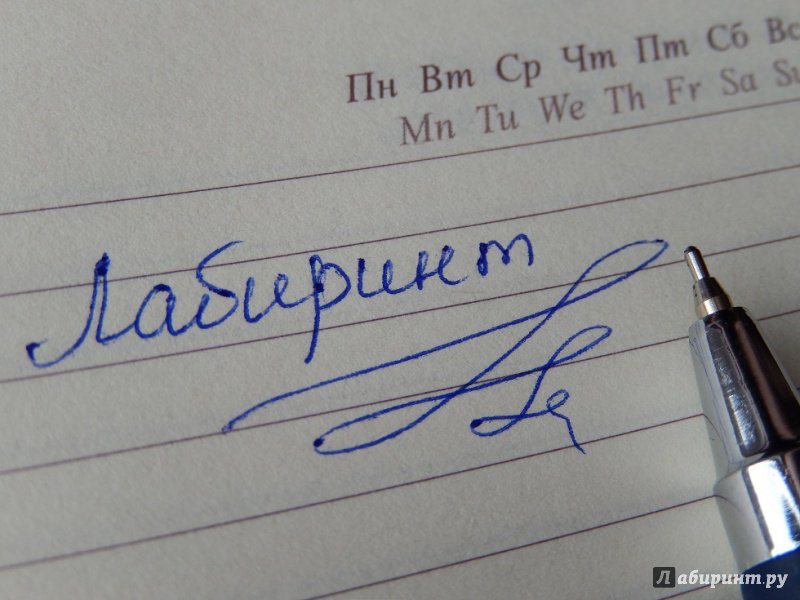 Пн Вт Ср Чт Пт Сб Вс
Mn Tu We Th Fr Sa Su
Лабиринт
Лабиринт.ру